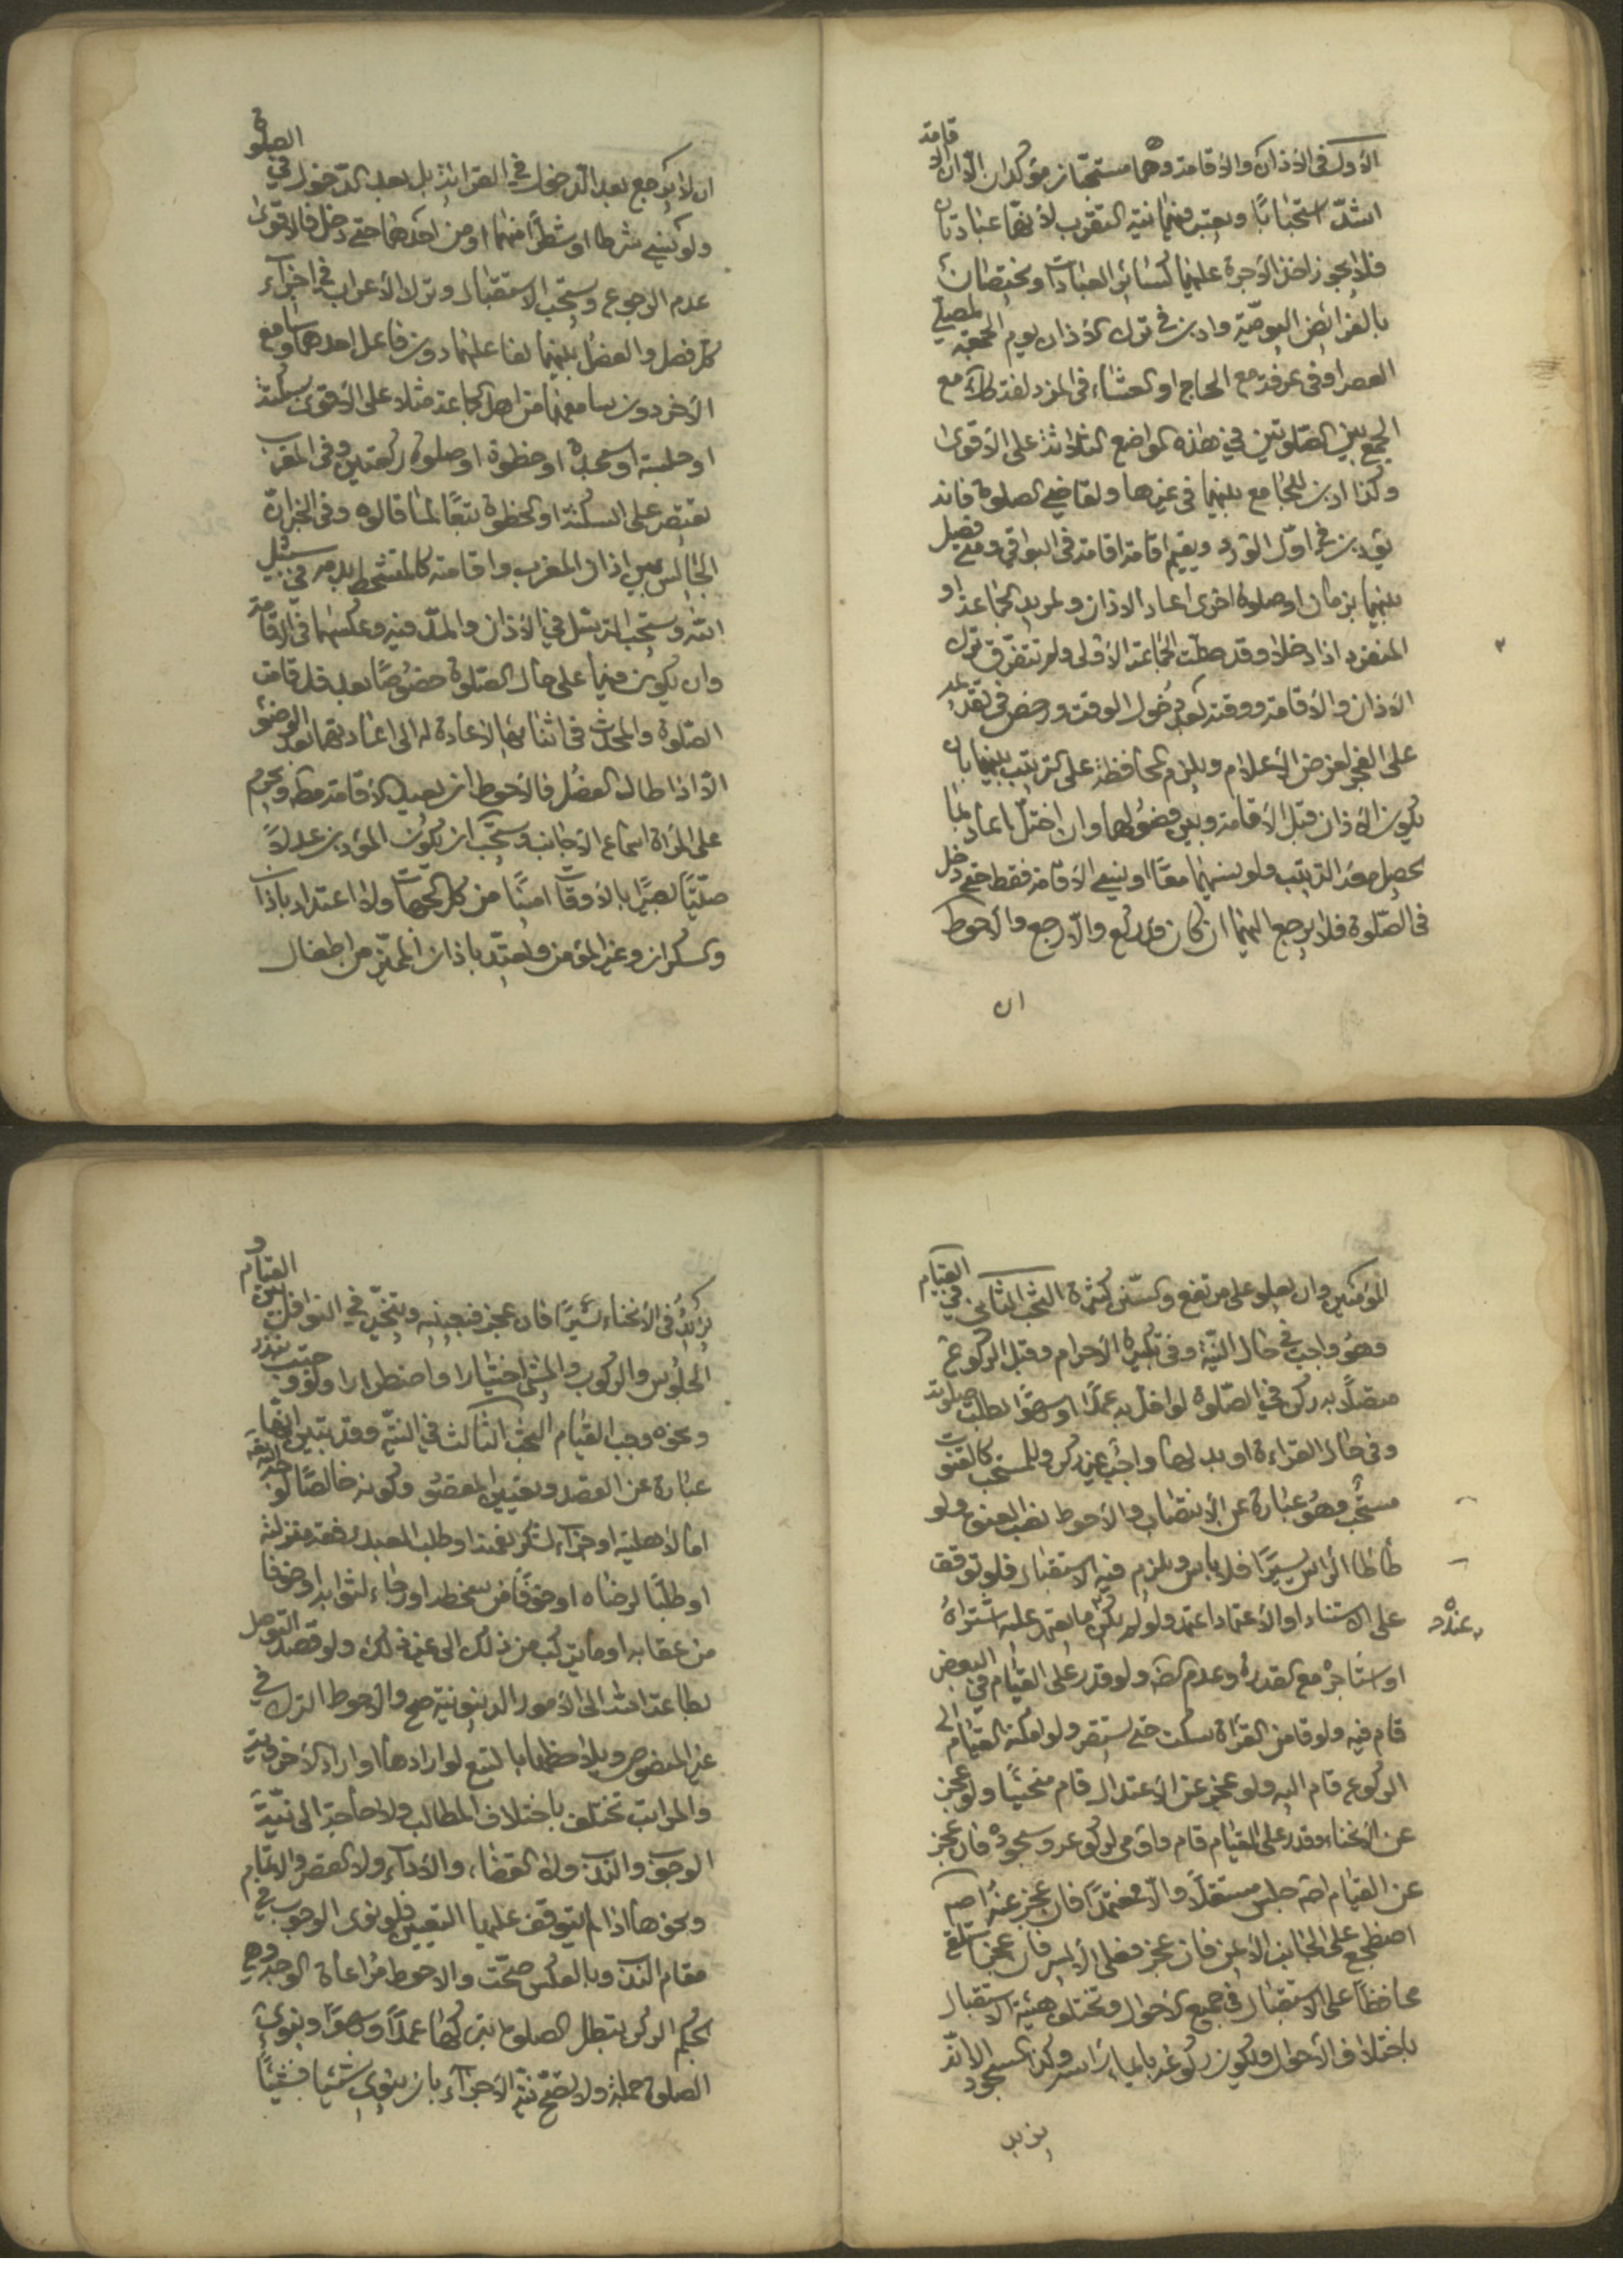 الأول في الأذان والأقامة وهما مستحبان مؤكدان الا ان الاقامة
اشدّ استحبابًا ويعتبر فيهما نيّة التقرب لأنهما عبادتان
فلا يجوز اخذ الأجرة عليهما كسائر العبادات ويختصان
بالفرائض اليوميّة واذن في ترك الأذان يوم الجمعة لمصلي
العصر او في عرفة مع الحاج او العشاء في المزدلفة كل مع
الجمع بين الصّلوتين في هذه المواضع الثلاثة على الأقوى
وكذا اذن للجامع بينهما في غيرها ولقاضي الصلوة فانه
يؤذن في اوّل الورد ويقيم اقامة اقامة في البواقي ومتى فصل
بينهما بزمان او صلوة اخرى اعاد الاذان ولمريد الجماعة او
المنفرد اذا دخلا وقد صلّت الجماعة الأولى ولم تتفرّق ترك
الأذان والأقامة ووقته بعد دُخول الوقت ورخص في تقدمه
على الفجر لغرض الأعلام ويلزم المحافظة على الترتيب بينهما بان
يكون الأذان قبل الأقامة وبين فصولهما وان اختلّ اعاد بما
يحصل معه الترتيب ولو نسيهما معًا او نسي الأقامة فقط حتى دخل
في الصّلوة فلا يرجع اليهما ان كان قد ركع والّا رجع والأحوط
ان
ان لا يرجع بعد الدّخول في القرائة بل بعد الدّخول في الصلوة
ولو نسي شرطا او شطرًا منهما او من احدهما حتى دخل فالاقوى
عدم الرجوع ويستحب الاستقبال وترك الأعراب في اجزاء
كل فصل والفصل بينهما لفاعلهما دون فاعل احدهما وسامع
الآخر دون سامعهما من اهل الجماعة مثلا على الأقوى بسكتة
او جلسة او سجدة او خطوة او صلوة ركعتين وفي المغرب
يقتصر على السكتة او الخطوة تبعًا لما قالوه وفي الخبر انّ
الجالس بين اذان المغرب واقامته كالمتشحط بدمه في سبيل
الله ويستحب الترسّل في الأذان والمدّ فيه وعكسهما في الاقامة
وان يكون فيهما على حال الصّلوة خصُوصًا بعد قد قامت
الصّلوة والمحدث في اثنائها لاعادة له الى اعادتهما بعد الوضوء
الّا اذا طال الفصُل فالأحوط ان يعيد الأقامة مطلقا ويحرم
على المرأة اسماع الأجانب ويستحب ان يكون المؤذن عدلًا
صيّتًا بصيرًا بالأوقات امينًا من كل الجهات ولا اعتداد باذان
والسكران وغير المؤمن ويعتدّ باذان المميّز من اطفال
المؤمنين وان يعلو على مرتفع والسّنن كثيرة البحث الثاني في القيام
وهُو واجب في حال النيّة وفي تكبيرة الأحرام وقبل الركوع
متصلًا به ركن في الصّلوة لو اخلّ به عمدًا او سهوًا بطلت صلوته
وفي حال القراءة او بدلها واجب غير ركن وللمستحب كالقنوت
مستحب وهُو عبارة عن الأنتصاب والأحوط نصب العنق ولو
طأطأ الرأس يسيرًا فلا باس ويلزم فيه الاستقبال فلو توقف
على الاستناد او الأعتماد اعتمد ولو لم يكن عنده ما يعتمد عليه اشتراهُ
او استأجره مع القدرة وعدم الضرر ولو قدر على القيام في البعض
قام فيه ولو قام من القراة سكت حتى يستقر ولو امكنه القيام الى
الركوع قام اليه ولو عجز عن الأعتدال قام منحنيًا ولو عجز
عن الانحناء وقدر على القيام قام واومى لركوعه وسجوده فان عجز
عن القيام اصلا جلس مستقلًا والّا معتمدًا فان عجز عنه اصلا
اضطجع على الجانب الأيمن فان عجز فعلى الأيسر فان عجز استلقى
محافظًا على الاستقبال في جميع الأحوال وتختلف هيئة الاستقبال
باختلاف الأحوال ويكون ركوعه بايماء راسه وكذا السجود الا انّه
يزيد
يزيدُ في الأنحناء يسيرًا فان عجز فبعينيه ويتخيّر في النوافل بين القيام و
الجلُوس والركوب والمشي اختيارا واضطرارا ولو وجب بنذر
ونحوه وجب القيام البحث الثالث في النيّة وقد تبين انها
عبارة عن القصد وتعيين المقصُود وكونه خالصًا لوجه الله
امّا لأهليته او جزاء لشكر نعمته او طلب العبد رفعة منزلته
او طلبًا لرضاه او خوفًا من سخطه او رجاء لثوابه او خوفا
من عقابه او ما يتركب من ذلك الى غير ذلك ولو قصد التوصل
بطاعة الله الى الأمور الدنيوية صح والأحوط الترك في
غير المنصوص ويلاحظها بالتبع لو ارادها او اراد الأخروية
والمراتب تختلف باختلاف المطالب ولا حاجة الى نيّة
الوجوب والندب ولا القضاء والأداء ولا القصر والاتمام
ونحوها اذا لم يتوقف عليها التعيين فلو نوى الوجوب في
مقام الندب وبالعكس صحّت والاحوط مراعاة الوجه وهي
بحكم الركن تبطل الصلوة بتركها عمدًا وسهوًا وينوي
الصلوة جملة ولا تصحّ نيّة الأجزاء بان ينوي شيئا فشيئًا